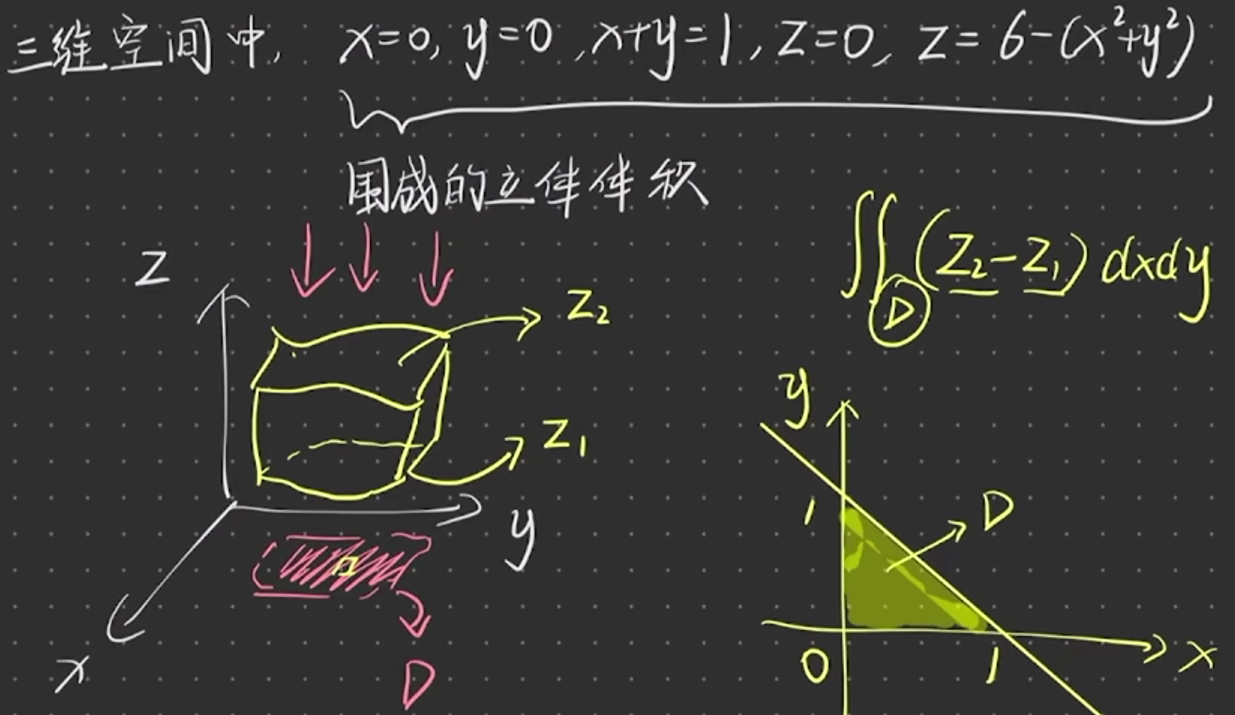 三维空间中, x=0, y=0, x+y=1, z=0, z=6-(x²+y²)
围成的立体体积
∬_D (z₂-z₁) dxdy
z
z₂
z₁
y
x
D
y
1
D
0
1
x